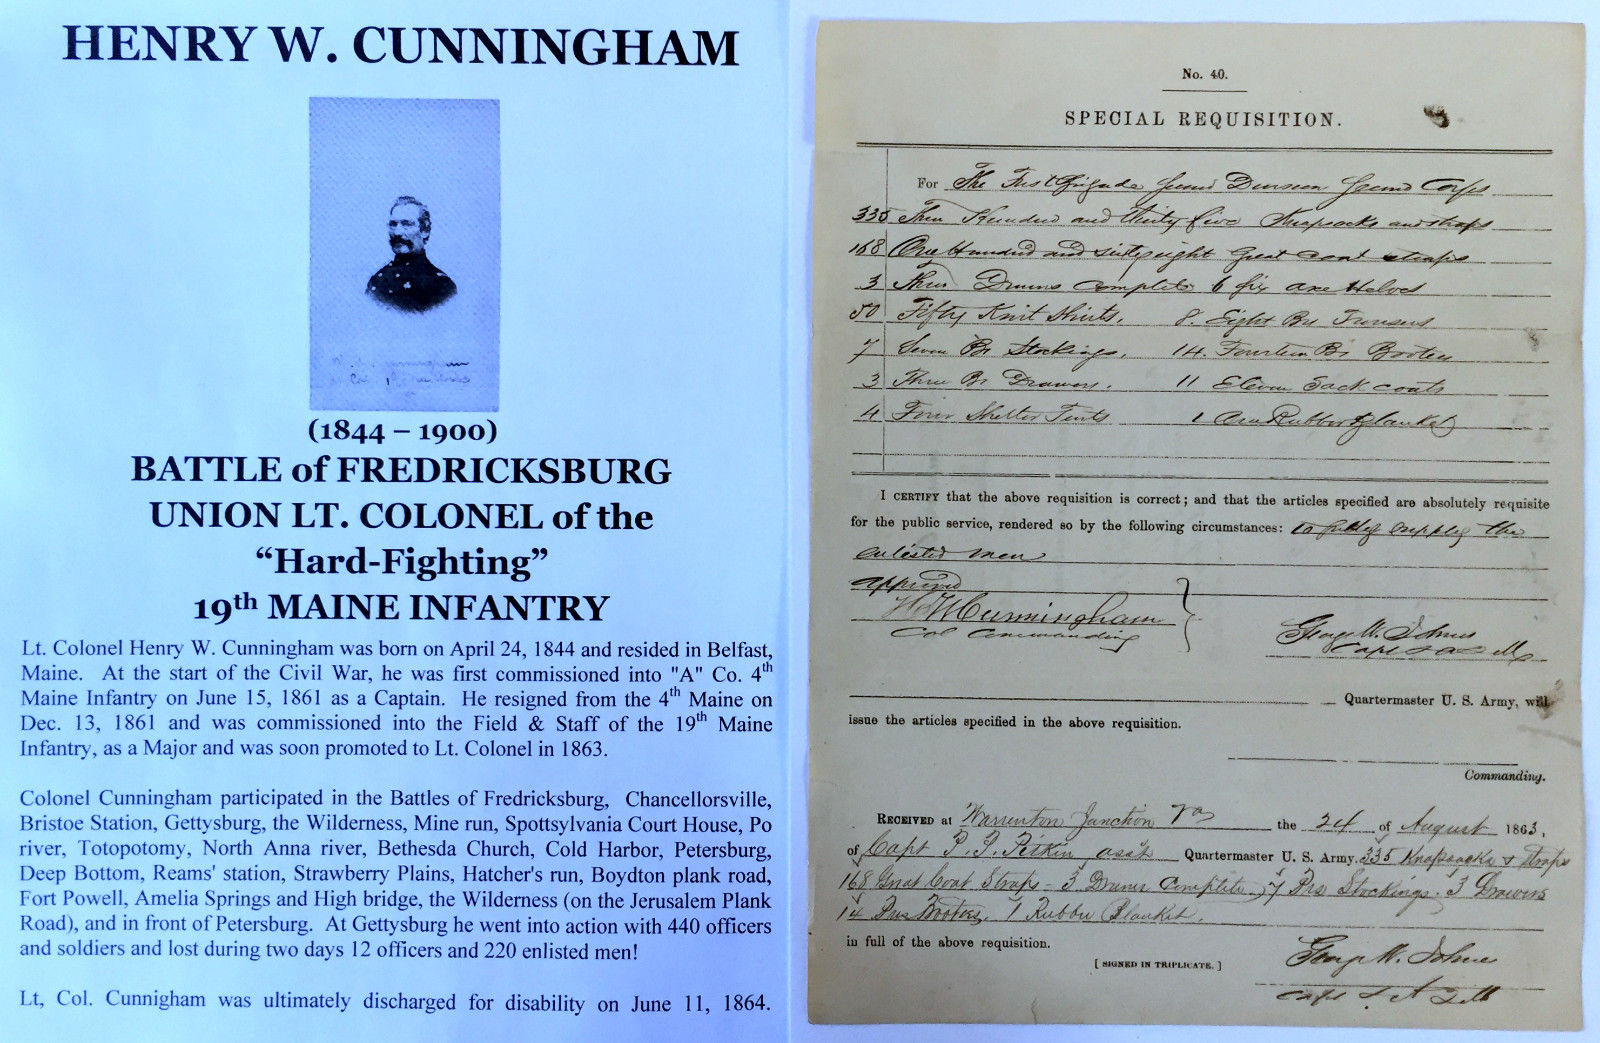 HENRY W. CUNNINGHAM
(1844 – 1900)
BATTLE of FREDRICKSBURG
UNION LT. COLONEL of the
“Hard-Fighting”
19th MAINE INFANTRY
Lt. Colonel Henry W. Cunningham was born on April 24, 1844 and resided in Belfast,
Maine. At the start of the Civil War, he was first commissioned into "A" Co. 4th
Maine Infantry on June 15, 1861 as a Captain. He resigned from the 4th Maine on
Dec. 13, 1861 and was commissioned into the Field & Staff of the 19th Maine
Infantry, as a Major and was soon promoted to Lt. Colonel in 1863.
Colonel Cunningham participated in the Battles of Fredricksburg, Chancellorsville,
Bristoe Station, Gettysburg, the Wilderness, Mine run, Spottsylvania Court House, Po
river, Totopotomy, North Anna river, Bethesda Church, Cold Harbor, Petersburg,
Deep Bottom, Reams' station, Strawberry Plains, Hatcher's run, Boydton plank road,
Fort Powell, Amelia Springs and High bridge, the Wilderness (on the Jerusalem Plank
Road), and in front of Petersburg. At Gettysburg he went into action with 440 officers
and soldiers and lost during two days 12 officers and 220 enlisted men!
Lt, Col. Cunnigham was ultimately discharged for disability on June 11, 1864.
No. 40.
SPECIAL REQUISITION.
For The First Brigade Second Division Second Corps
335 Three Hundred and thirty five Knapsacks and straps
168 One Hundred and sixty eight Great coat straps
3 Three Drums complete 6 six axe Helves
50 Fifty Knit Shirts, 8. Eight Prs Trousers
7 Seven Prs Stockings, 14. Fourteen Prs Bootees
3 Three Prs Drawers. 11 Eleven Sack coats
4 Four Shelter Tents 1 One Rubber Blanket
I CERTIFY that the above requisition is correct; and that the articles specified are absolutely requisite
for the public service, rendered so by the following circumstances: to fully supply the
enlisted men
approved
H W Cunningham
Col Commanding
George W. Johnes
Capt
Quartermaster U. S. Army, will
issue the articles specified in the above requisition.
Commanding.
RECEIVED at Warrenton Junction Va the 24 of August 1863,
of Capt P. P. Pitkin asst Quartermaster U. S. Army. 335 Knapsacks & straps
168 Great Coat Straps - 3 Drums Complete, 7 Prs Stockings. 3 Drawers
14 Prs Bootees, 1 Rubber Blanket.
in full of the above requisition.
[SIGNED IN TRIPLICATE.]
George W. Johnes
Capt